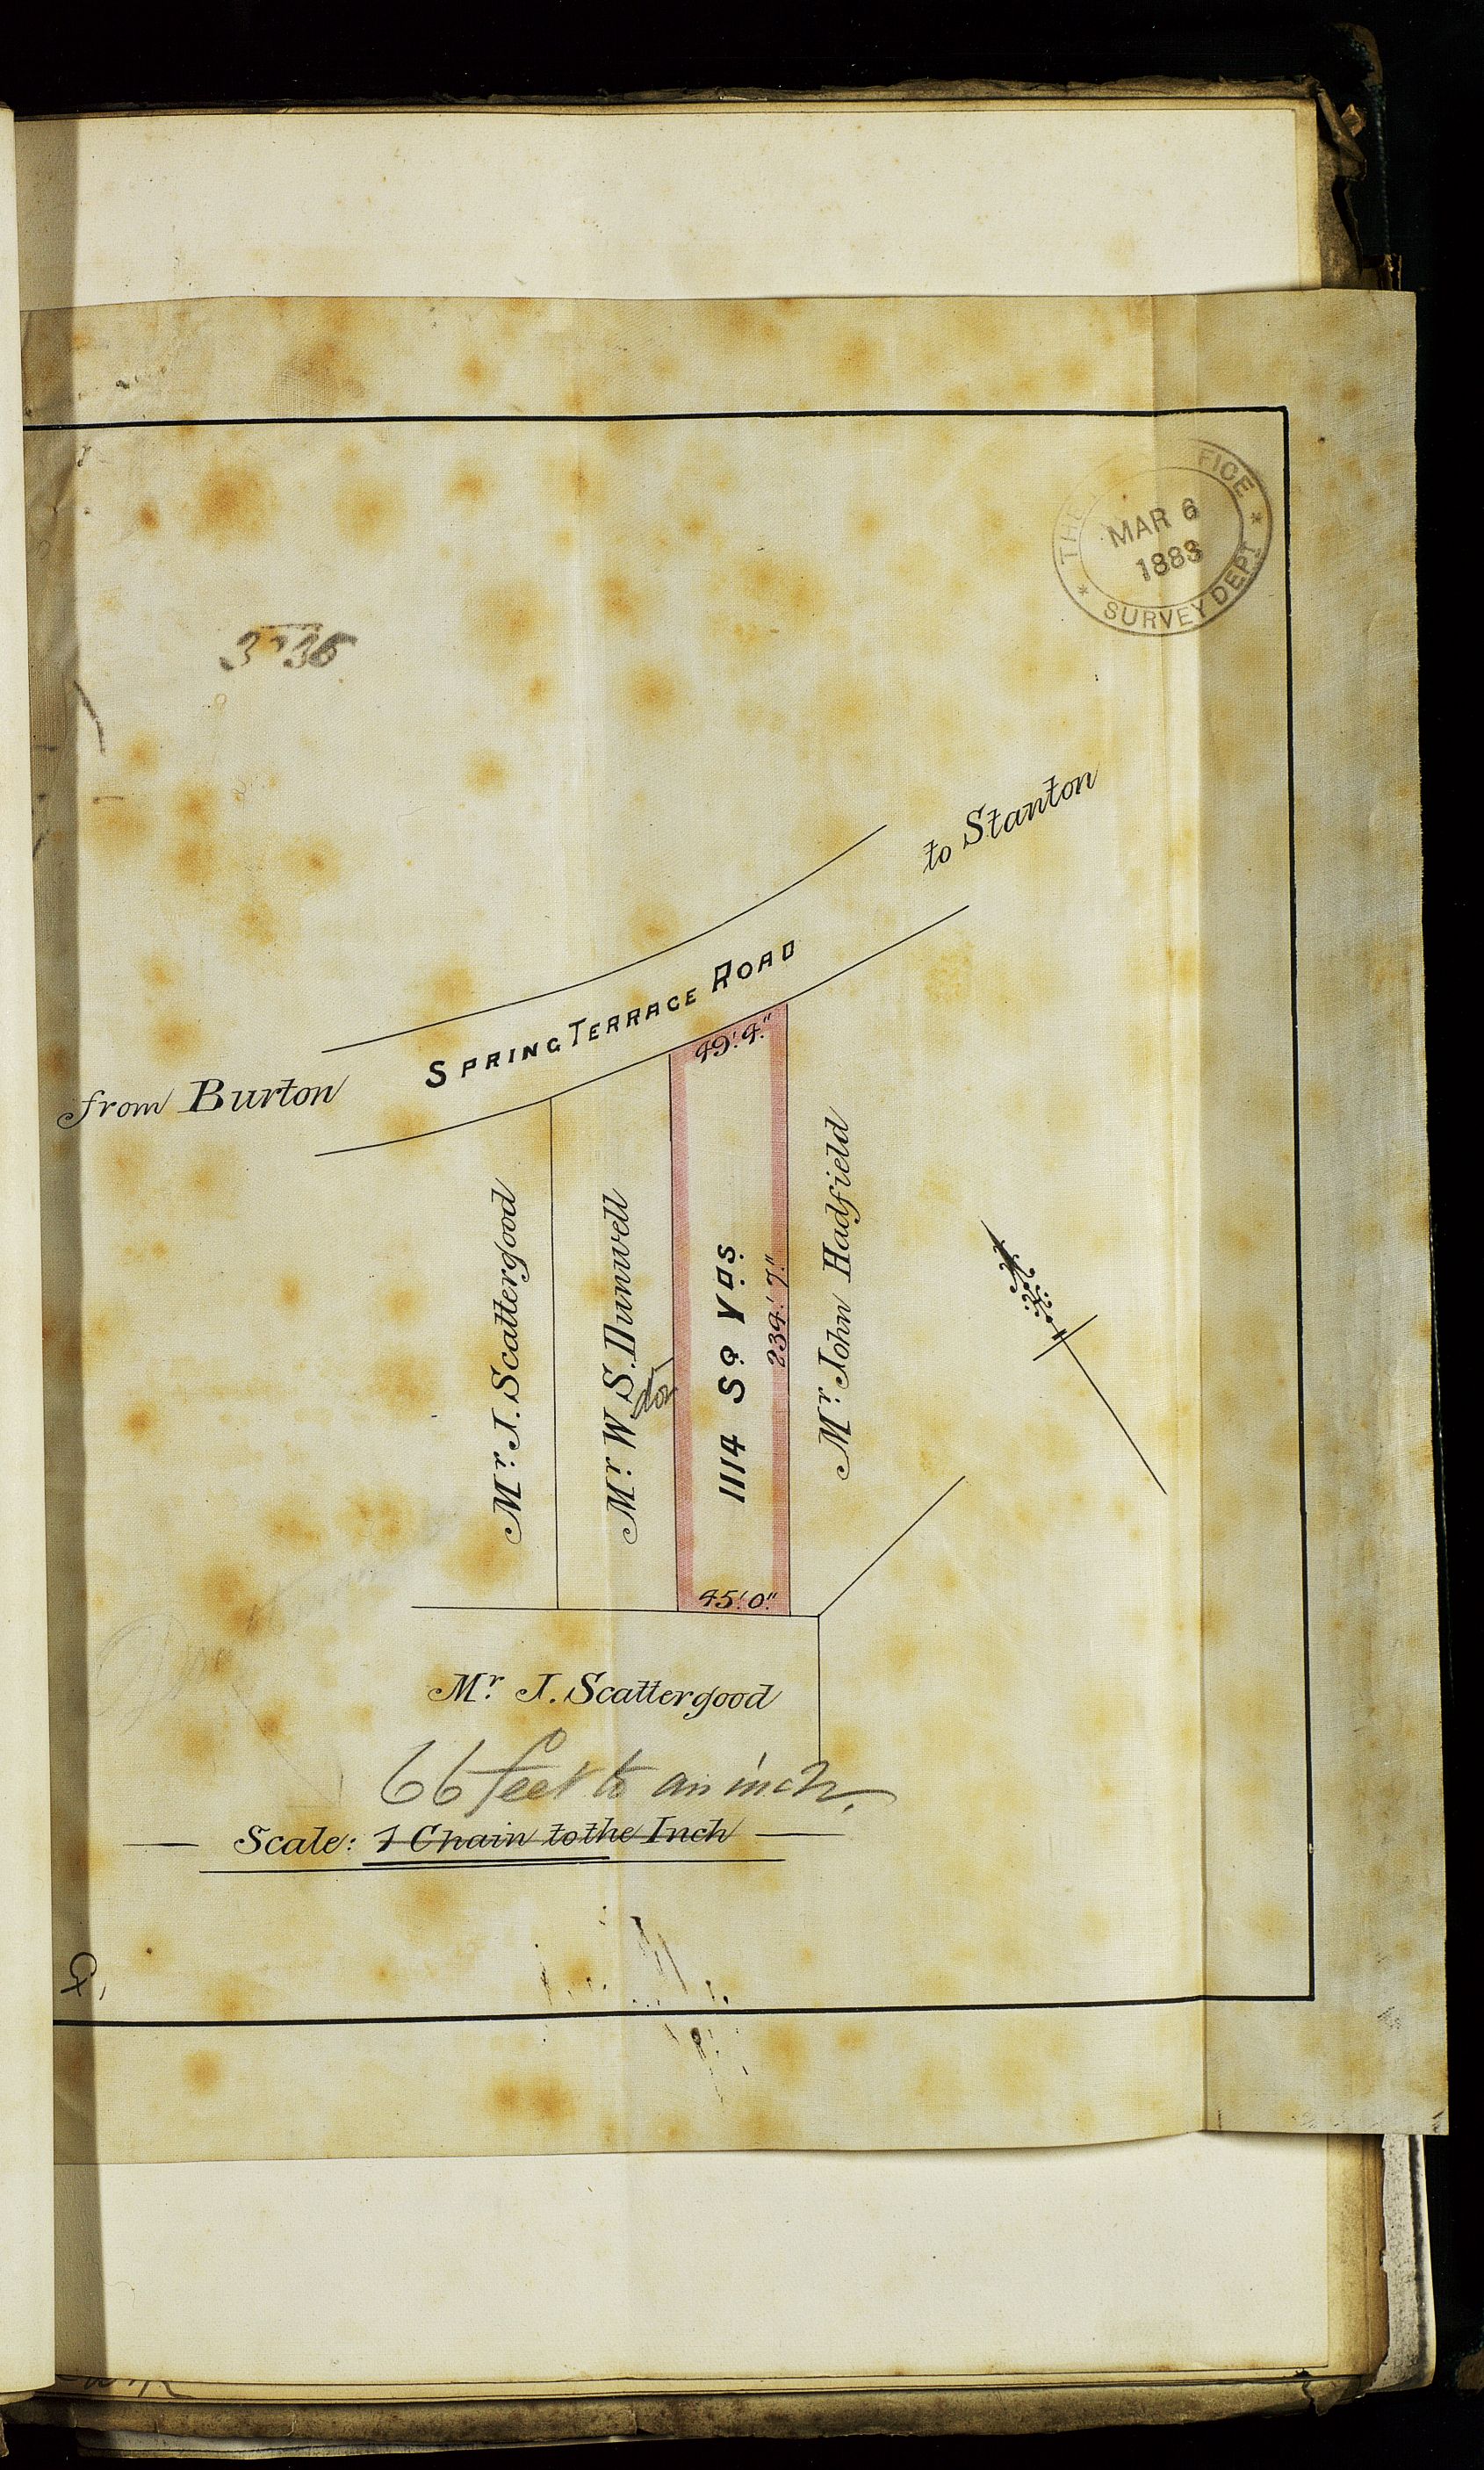 FICE
MAR 6
1883
SURVEY DEPT
to Stanton
SPRING TERRACE ROAD
from Burton
49'. 4."
Mr. J. Scattergood
Mr. W. S. Dunwell
1114 SQ. YDS.
239'. 7."
Mr. John Hadfield
45'. 0."
Mr. J. Scattergood
66 feet to an inch.
Scale: 1 Chain to the Inch